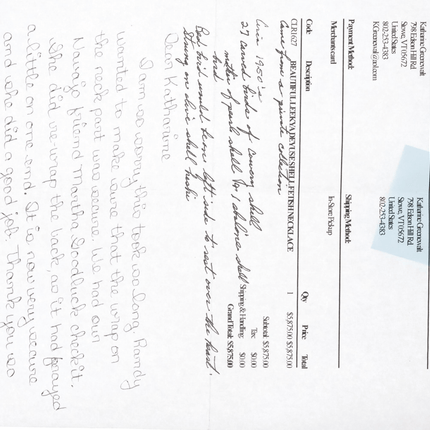 Katharine Grzenvall
798 Edson Hill Rd.
Stowe, VT 05672
United States
802-253-4383
Katharine
798 Edson Hill Rd.
Stowe, VT 05672
United States
802-253-4383
Payment Method:
Merchants card
Shipping Method:
In-Store Pickup
Code Description Qty Price Total
BEAUTIFUL LEEKYA DEYUSE SHELL FETISH NECKLACE 1 $5,875.00 $5,875.00
Came from a private collection
Circa 1950's
27 carved birds of conery shell
mother of pearl shell & abalone shell
bird
Bird would from left side to rest over the heart.
Strung on olive shell heshi
Subtotal: $5,875.00
Tax: $0.00
Shipping & Handling: $0.00
Grand Total: $5,875.00
Dear Katharine
I am so sorry this took so long. Randy
wanted to make sure that the wrap on
the neck part was secure. We had our
Navajo friend Martha Goodluck check it.
She did re-wrap the back, as it had frayed
a little on one end. It is now very secure
and she did a good job. Thank you so